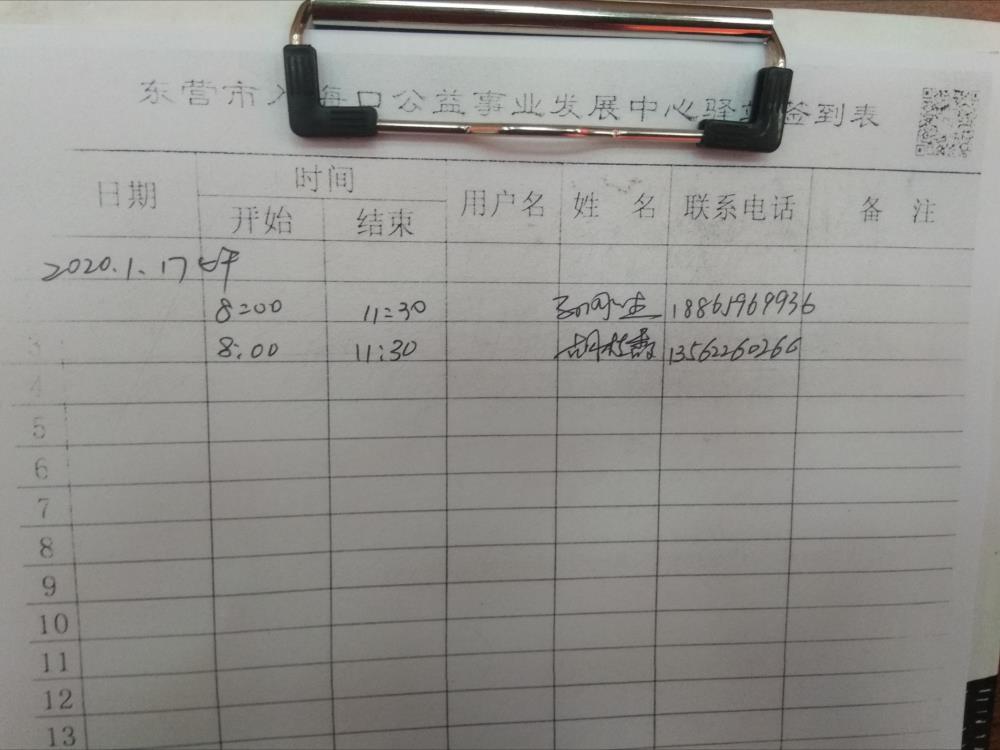 东营市入海口公益事业发展中心驿站签到表
日期 时间 用户名 姓 名 联系电话 备 注
开始 结束
2020.1.17
8:00 11:30 18865969936
3 8:00 11:30 13562260266
4
5
6
7
8
9
10
11
12
13